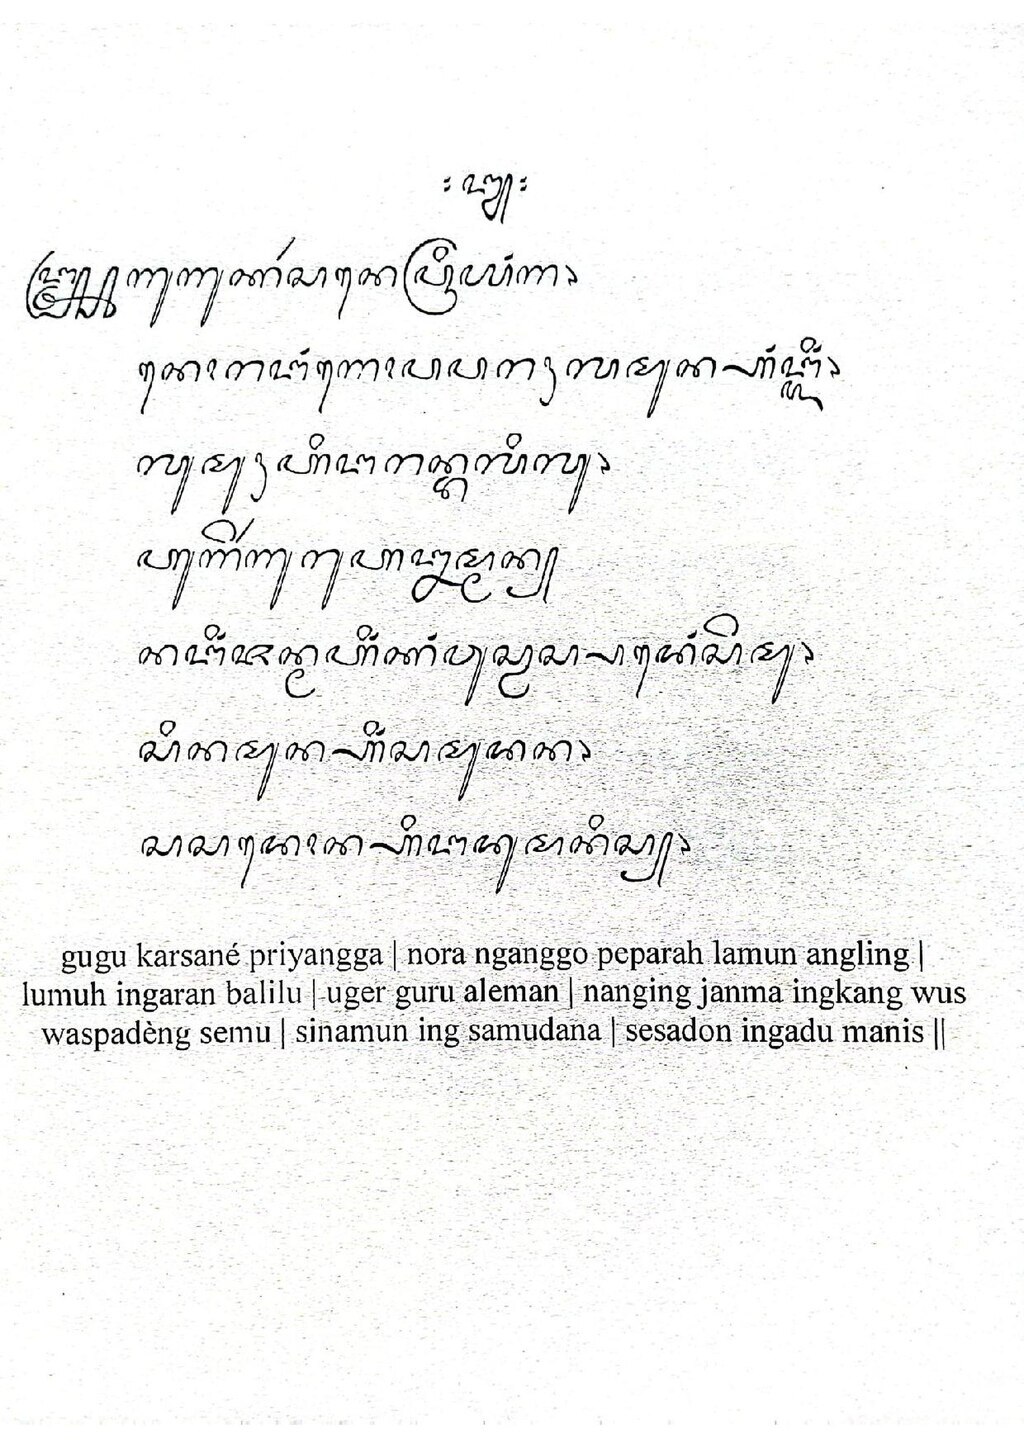 ꦒꦸꦒꦸꦏꦂꦱꦤꦺꦥꦿꦶꦪꦁꦒ꧈
ꦤꦺꦴꦫꦔꦁꦒꦺꦴꦥꦥꦫꦃꦭꦩꦸꦤ꧀ꦲꦁꦔ꧀ꦭꦶꦁ꧈
ꦭꦸꦩꦸꦃꦲꦶꦔꦫꦤ꧀ꦧꦭꦶꦭꦸ꧈
ꦲꦸꦒꦼꦂꦒꦸꦫꦸꦲꦊꦩ꧀ꦩꦤ꧀
ꦤꦔꦶꦁꦗꦤ꧀ꦩꦲꦶꦁꦏꦁꦮꦸꦱ꧀ꦮꦱ꧀ꦥꦢꦺꦁꦱꦼꦩꦸ꧈
ꦱꦶꦤꦩꦸꦤ꧀ꦲꦶꦁꦱꦩꦸꦢꦤ꧈
ꦱꦱꦢꦺꦴꦤ꧀ꦲꦶꦔꦢꦸꦩꦤꦶꦱ꧀꧈
gugu karsané priyangga | nora nganggo peparah lamun angling |
lumuh ingaran balilu | uger guru aleman | nanging janma ingkang wus
waspadèng semu | sinamun ing samudana | sesadon ingadu manis ||